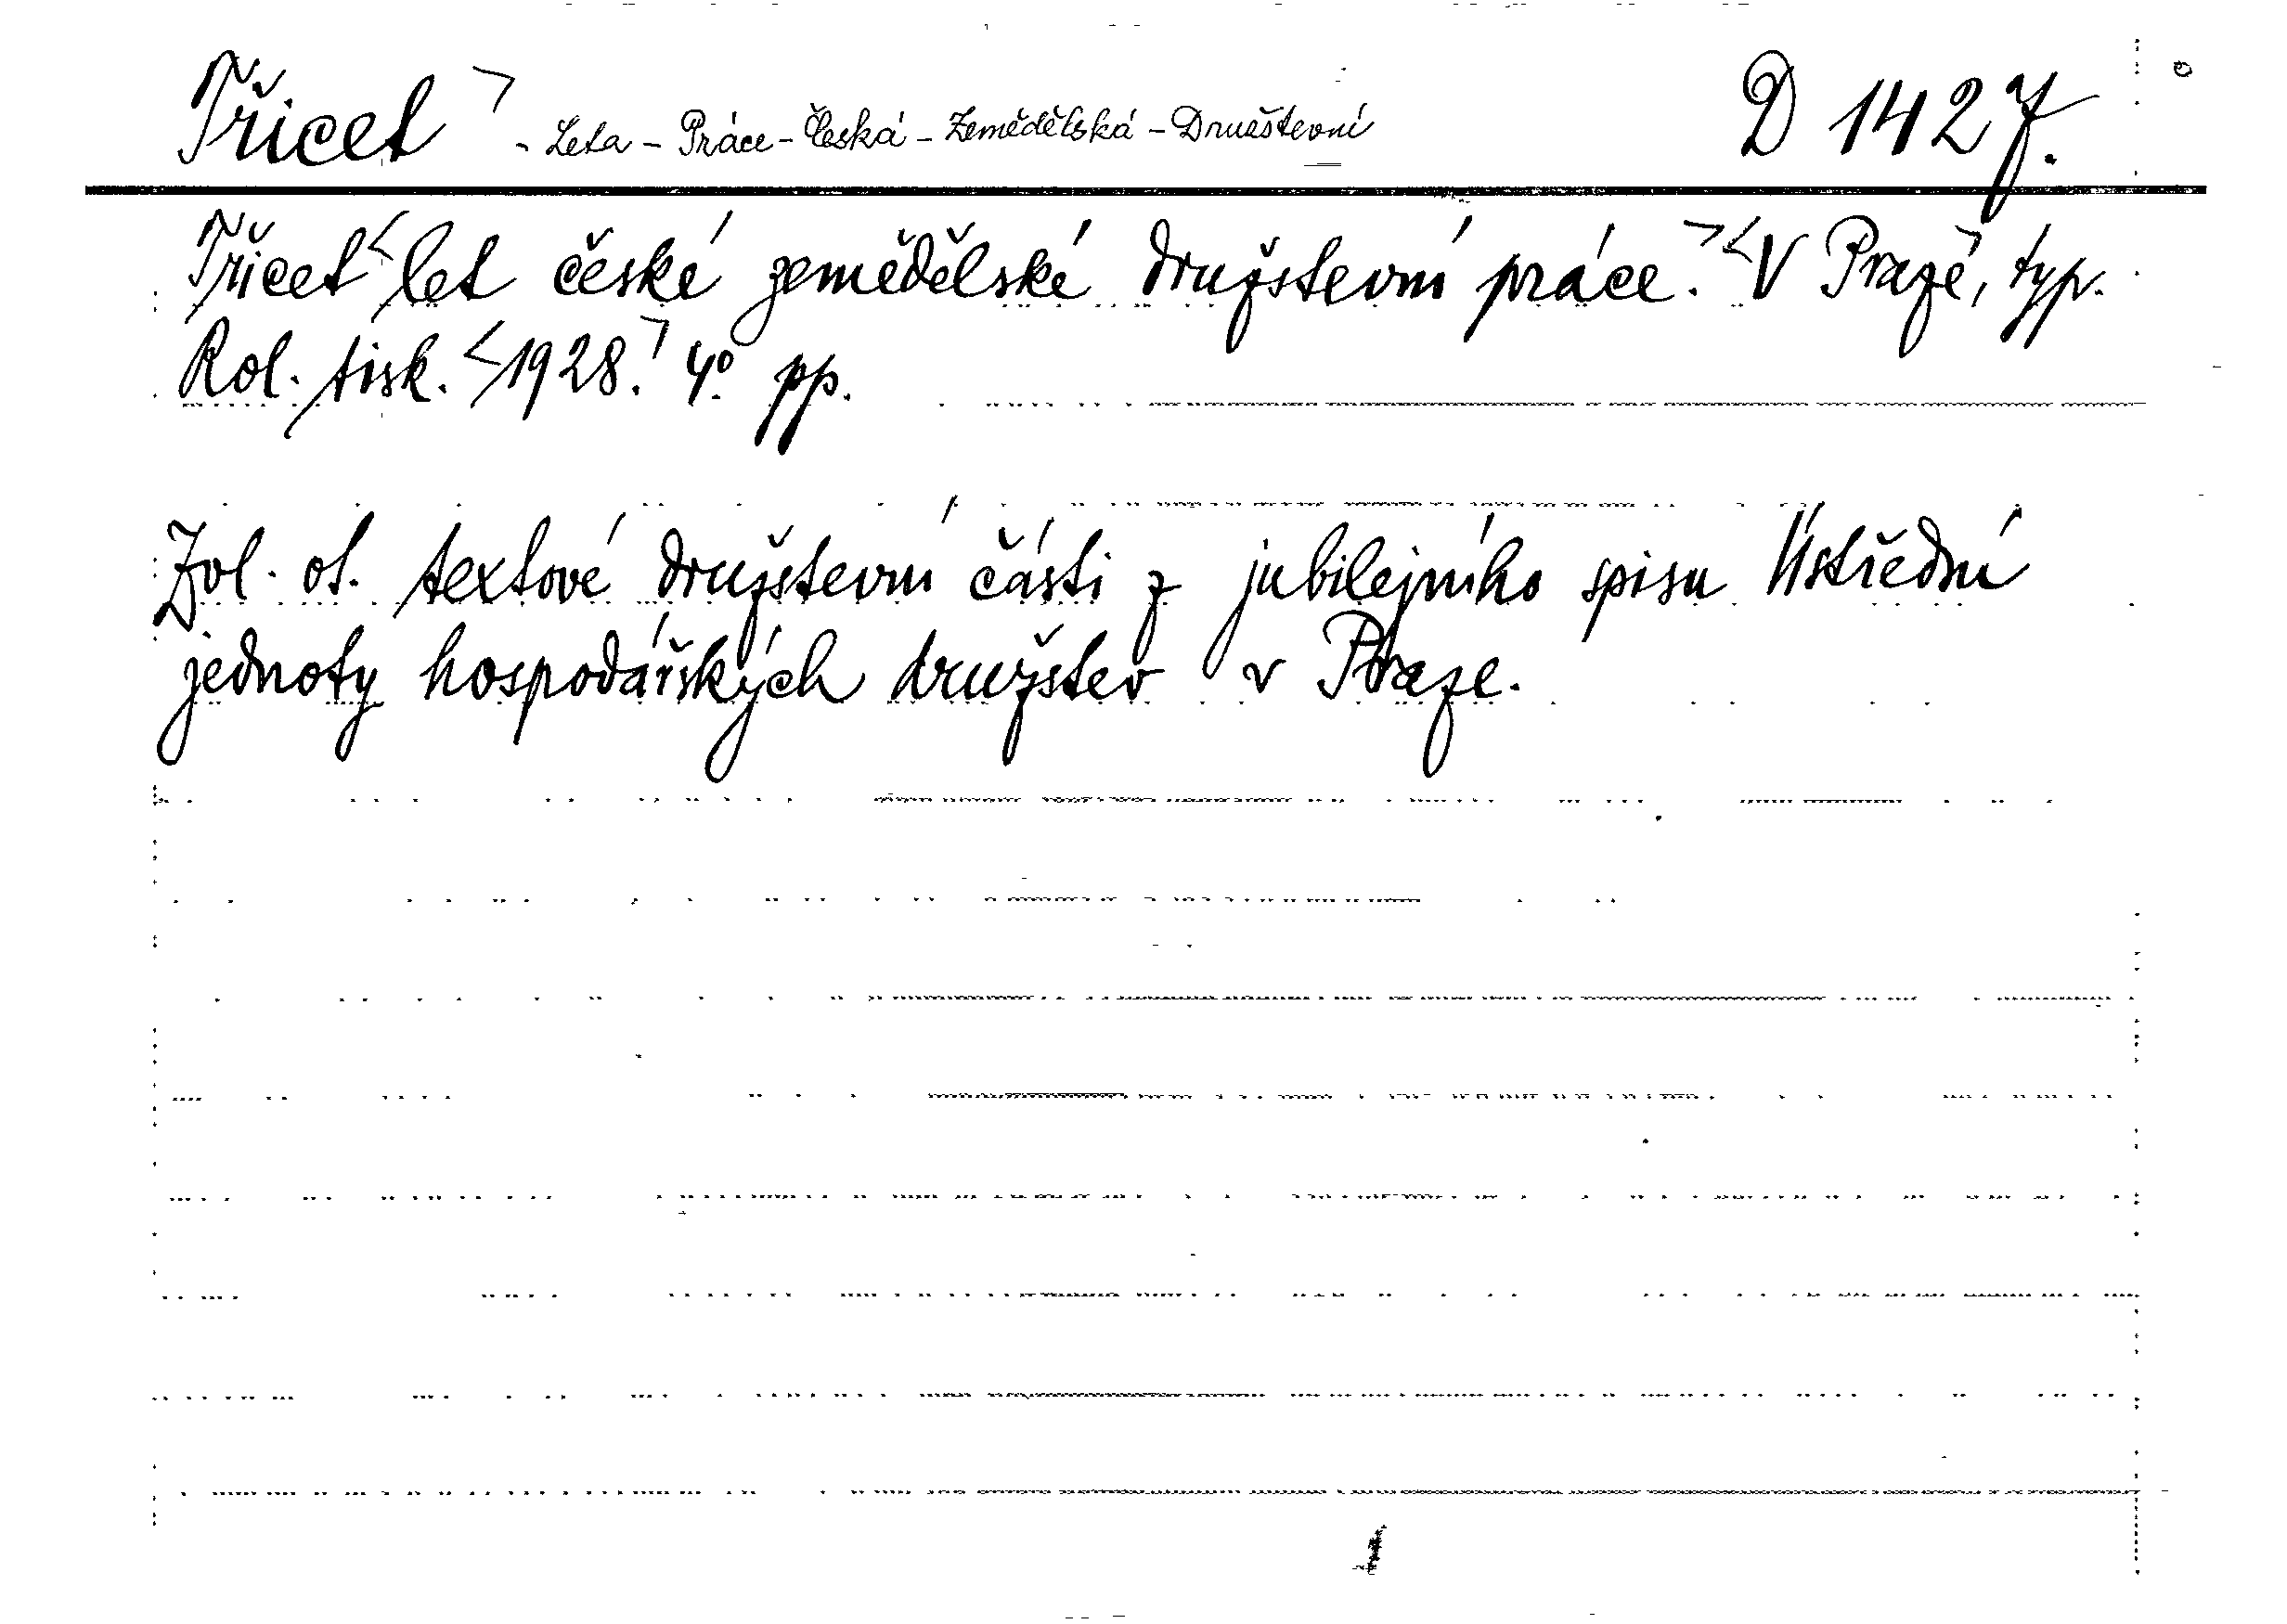 Třicet - Leta - Práce - Česká - Zemědělská - Družstevní D 1427.
Třicet let české zemědělské družstevní práce. V Praze, typ.
Rol. tisk. 1928. 4° pp.
Zvl. ot. textové družstevní části z jubilejního spisu Ústřední
jednoty hospodářských družstev v Praze.